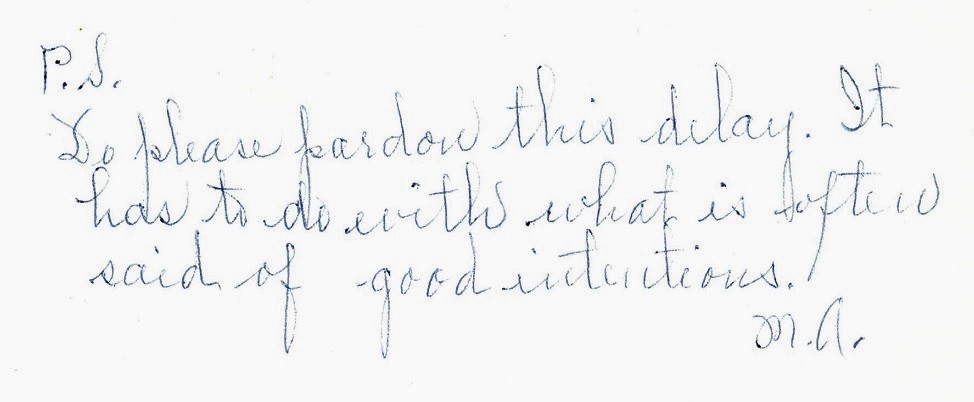 P.S.
Do please pardon this delay. It
has to do with what is often
said of good intentions.
M.A.